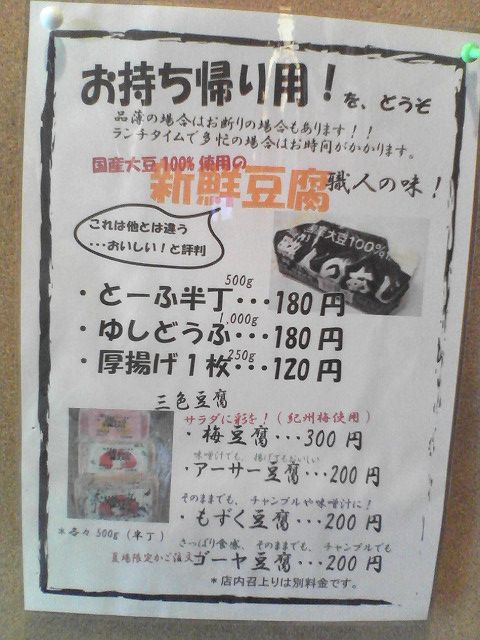 お持ち帰り用！を、どうぞ
品薄の場合はお断りの場合もあります！！
ランチタイムで多忙の場合はお時間がかかります。
国産大豆100%使用の
新鮮豆腐 職人の味！
これは他とは違う
・・・おいしい！と評判
国産大豆100%
500g
・とーふ半丁・・・180円
1,000g
・ゆしどうふ・・・180円
250g
・厚揚げ1枚・・・120円
三色豆腐
サラダに彩を！(紀州梅使用)
・梅豆腐・・・300円
味噌汁でも、揚げてもおいしい
・アーサー豆腐・・・200円
そのままでも、チャンプルや味噌汁に！
・もずく豆腐・・・200円
*各々500g(半丁)
さっぱり食感、そのままでも、チャンプルでも
夏場限定かご注文
ゴーヤ豆腐・・・200円
*店内召上りは別料金です。